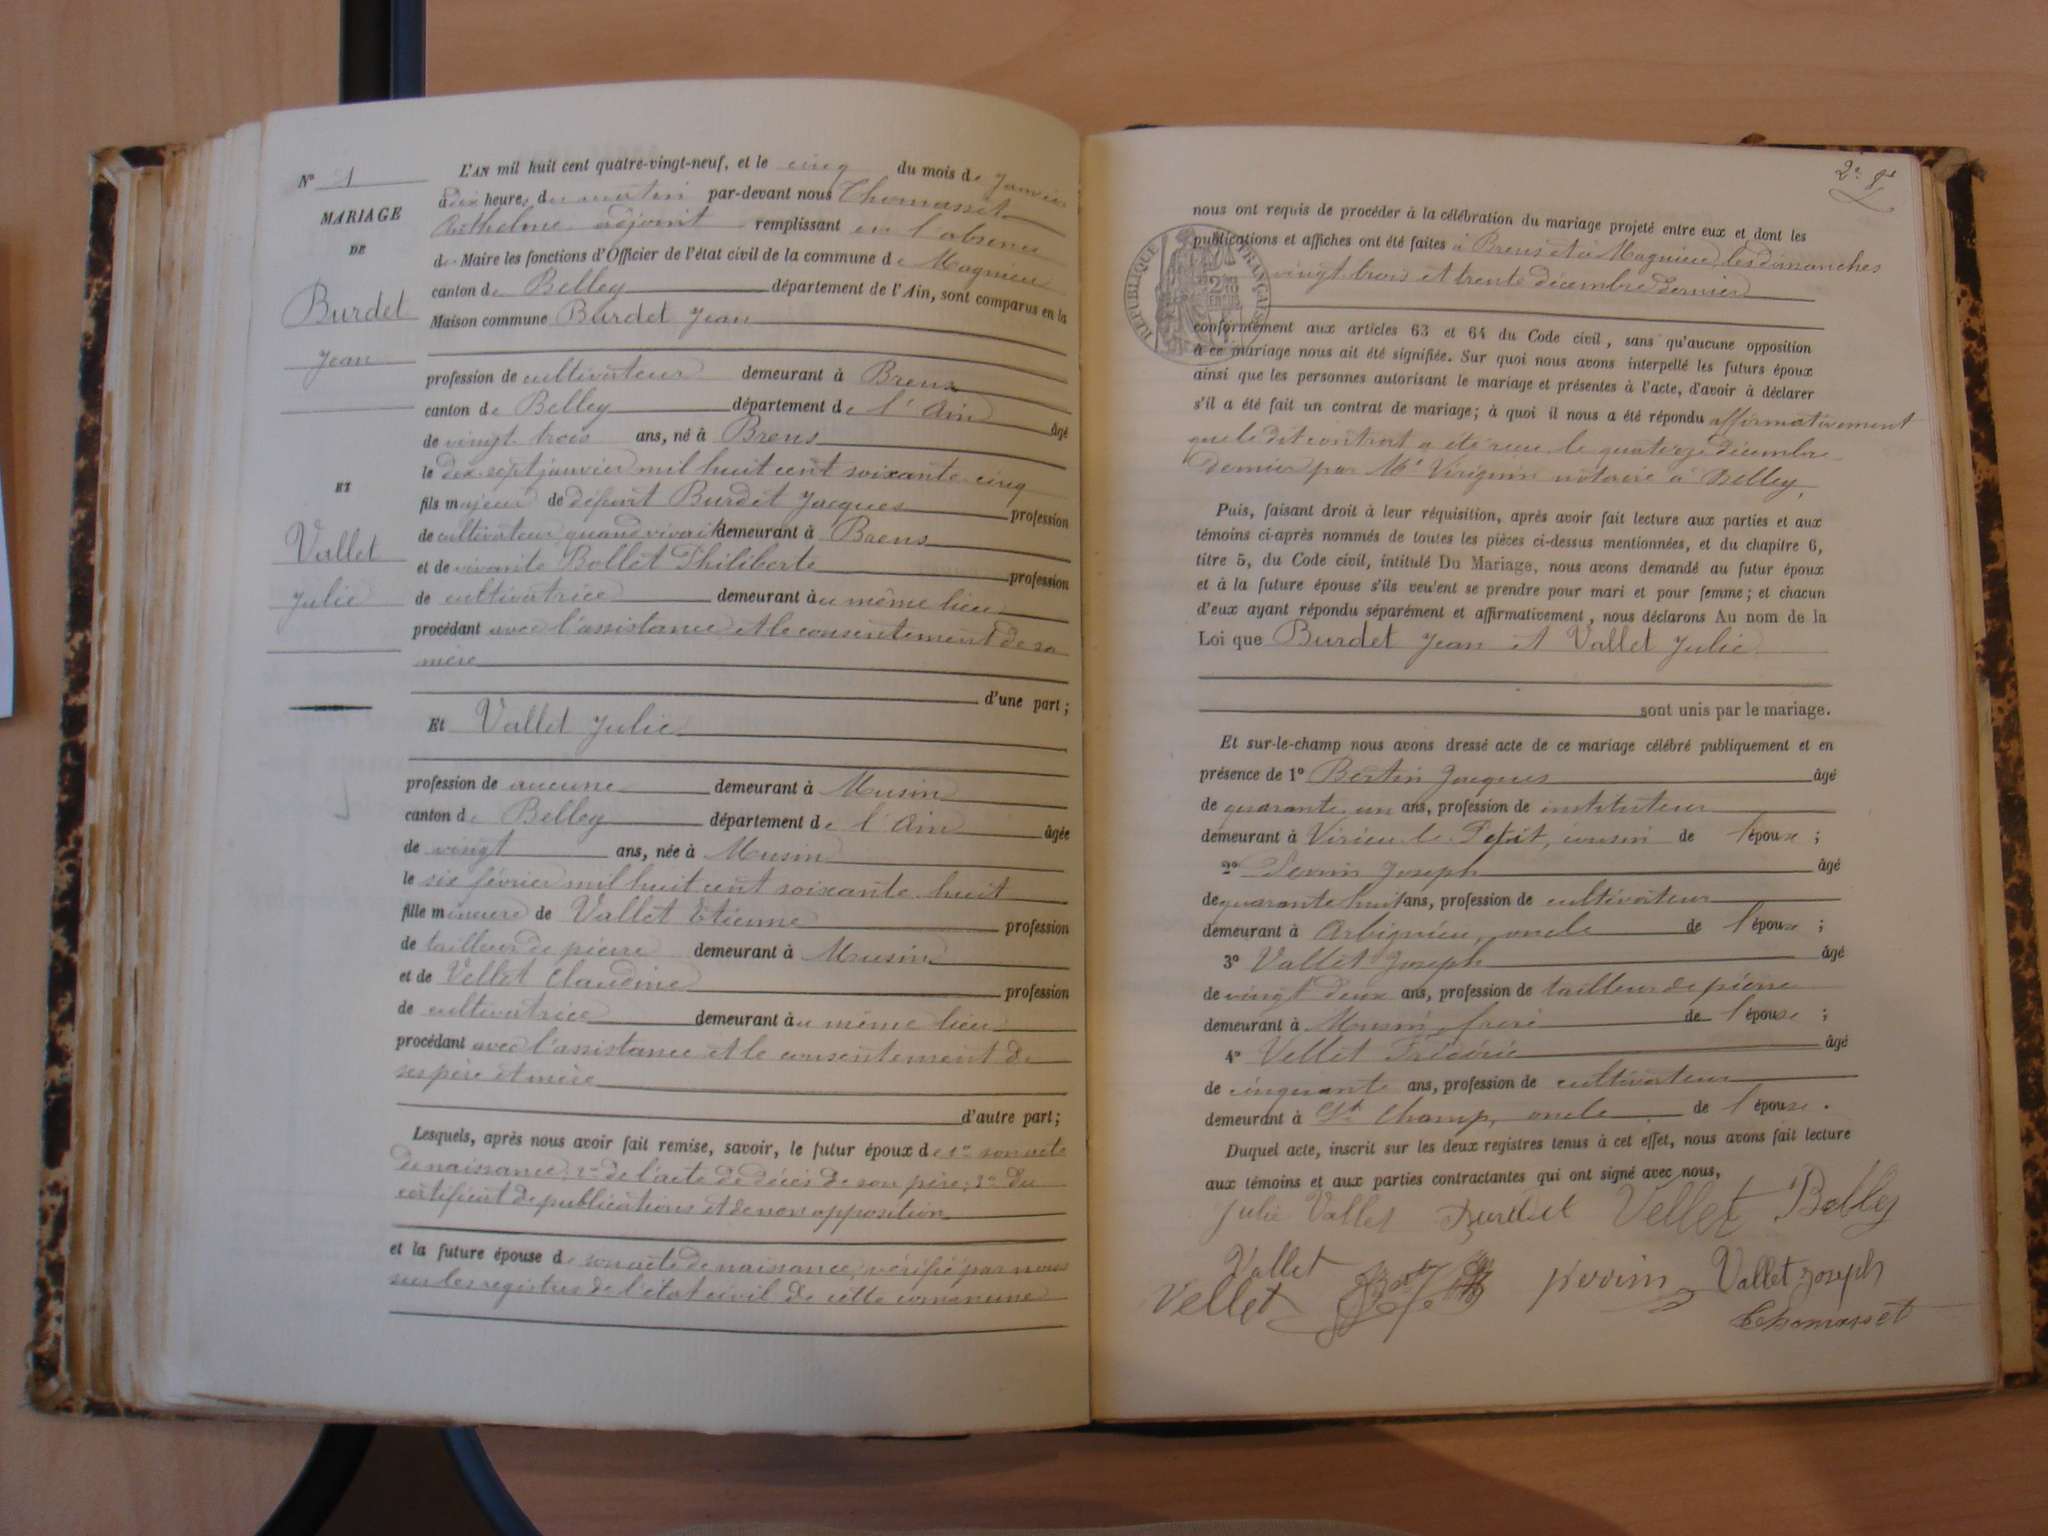 N° 1
MARIAGE
DE
Burdet
Jean
ET
Vallet
Julie
L'AN mil huit cent quatre-vingt-neuf, et le cinq du mois de janvier
à dix heures du matin par-devant nous Thomasset
Anthelme adjoint remplissant en l'absence
de Maire les fonctions d'Officier de l'état civil de la commune de Magnieu
canton de Belley département de l'Ain, sont comparus en la
Maison commune Burdet Jean
profession de cultivateur demeurant à Brens
canton de Belley département de l'Ain âgé
de vingt trois ans, né à Brens
le dix sept janvier mil huit cent soixante cinq
fils majeur de défunt Burdet Jacques profession
de cultivateur quand vivait demeurant à Brens
et de vivante Bollet Philiberte profession
de cultivatrice demeurant au même lieu
procédant avec l'assistance et le consentement de sa
mère
d'une part;
Et Vallet Julie
profession de aucune demeurant à Musin
canton de Belley département de l'Ain âgée
de vingt ans, née à Musin
le six février mil huit cent soixante huit
fille mineure de Vallet Etienne profession
de tailleur de pierre demeurant à Musin
et de Vellet Claudine profession
de cultivatrice demeurant au même lieu
procédant avec l'assistance et le consentement de
ses père et mère
d'autre part;
Lesquels, après nous avoir fait remise, savoir, le futur époux de 1° son acte
de naissance; 2° de l'acte de décès de son père; 3° du
certificat de publications et de non opposition
et la future épouse de son acte de naissance, vérifié par nous
sur les registres de l'état civil de cette commune
2e
RÉPUBLIQUE FRANÇAISE
nous ont requis de procéder à la célébration du mariage projeté entre eux et dont les
publications et affiches ont été faites à Brens et à Magnieu, les dimanches
vingt trois et trente décembre dernier
conformément aux articles 63 et 64 du Code civil, sans qu'aucune opposition
à ce mariage nous ait été signifiée. Sur quoi nous avons interpellé les futurs époux
ainsi que les personnes autorisant le mariage et présentes à l'acte, d'avoir à déclarer
s'il a été fait un contrat de mariage; à quoi il nous a été répondu affirmativement
que le dit contrat a été reçu le quatorze décembre
dernier par Me notaire à Belley,
Puis, faisant droit à leur réquisition, après avoir fait lecture aux parties et aux
témoins ci-après nommés de toutes les pièces ci-dessus mentionnées, et du chapitre 6,
titre 5, du Code civil, intitulé Du Mariage, nous avons demandé au futur époux
et à la future épouse s'ils veulent se prendre pour mari et pour femme; et chacun
d'eux ayant répondu séparément et affirmativement, nous déclarons Au nom de la
Loi que Burdet Jean et Vallet Julie
sont unis par le mariage.
Et sur-le-champ nous avons dressé acte de ce mariage célébré publiquement et en
présence de 1° Bertin Jacques âgé
de quarante un ans, profession de instituteur
demeurant à Virieu le Petit, cousin de l'époux;
2° Perrin Joseph âgé
de quarante huit ans, profession de cultivateur
demeurant à Arbignieu, oncle de l'époux;
3° Vallet Joseph âgé
de vingt deux ans, profession de tailleur de pierre
demeurant à Musin, frère de l'épouse;
4° Vellet Frédéric âgé
de cinquante ans, profession de cultivateur
demeurant à St Champ, oncle de l'épouse.
Duquel acte, inscrit sur les deux registres tenus à cet effet, nous avons fait lecture
aux témoins et aux parties contractantes qui ont signé avec nous,
Julie Vallet Burdet Vellet
Vallet
Vellet perrin Vallet Joseph
Thomasset